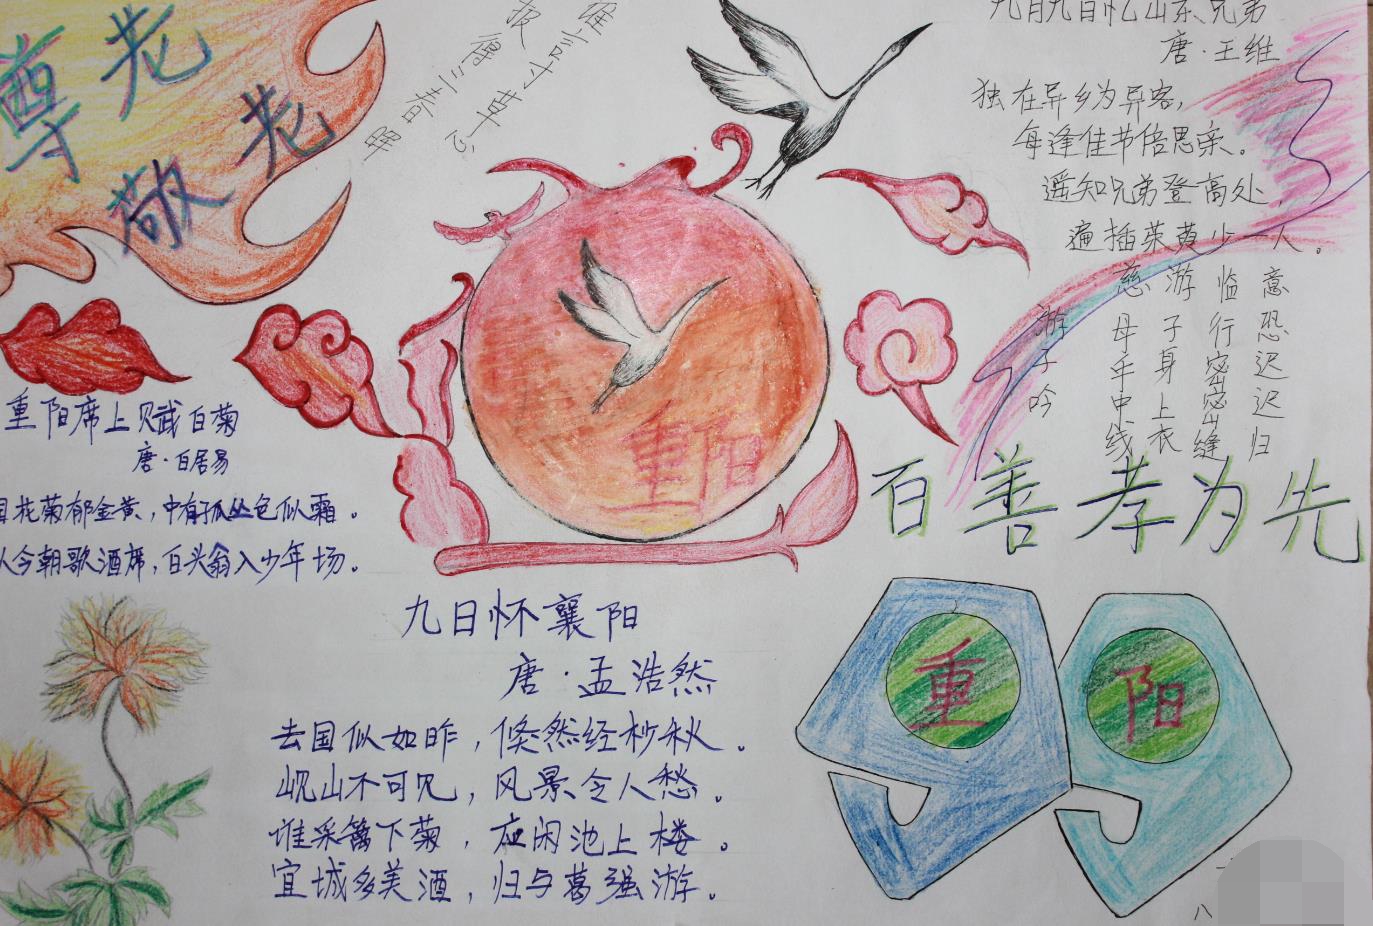 尊老
敬老
谁言寸草心
报得三春晖
九月九日忆山东兄弟
唐·王维
独在异乡为异客,
每逢佳节倍思亲。
遥知兄弟登高处,
遍插茱萸少一人。
游子吟
慈母手中线
游子身上衣
临行密密缝
意恐迟迟归
重阳
重阳席上赋白菊
唐·白居易
园花菊郁金黄,中有孤丛色似霜。
似今朝歌酒席,白头翁入少年场。
百善孝为先
九日怀襄阳
唐·孟浩然
去国似如昨,倏然经杪秋。
岘山不可见,风景令人愁。
谁采篱下菊,应闲池上楼。
宜城多美酒,归与葛强游。
重阳
八